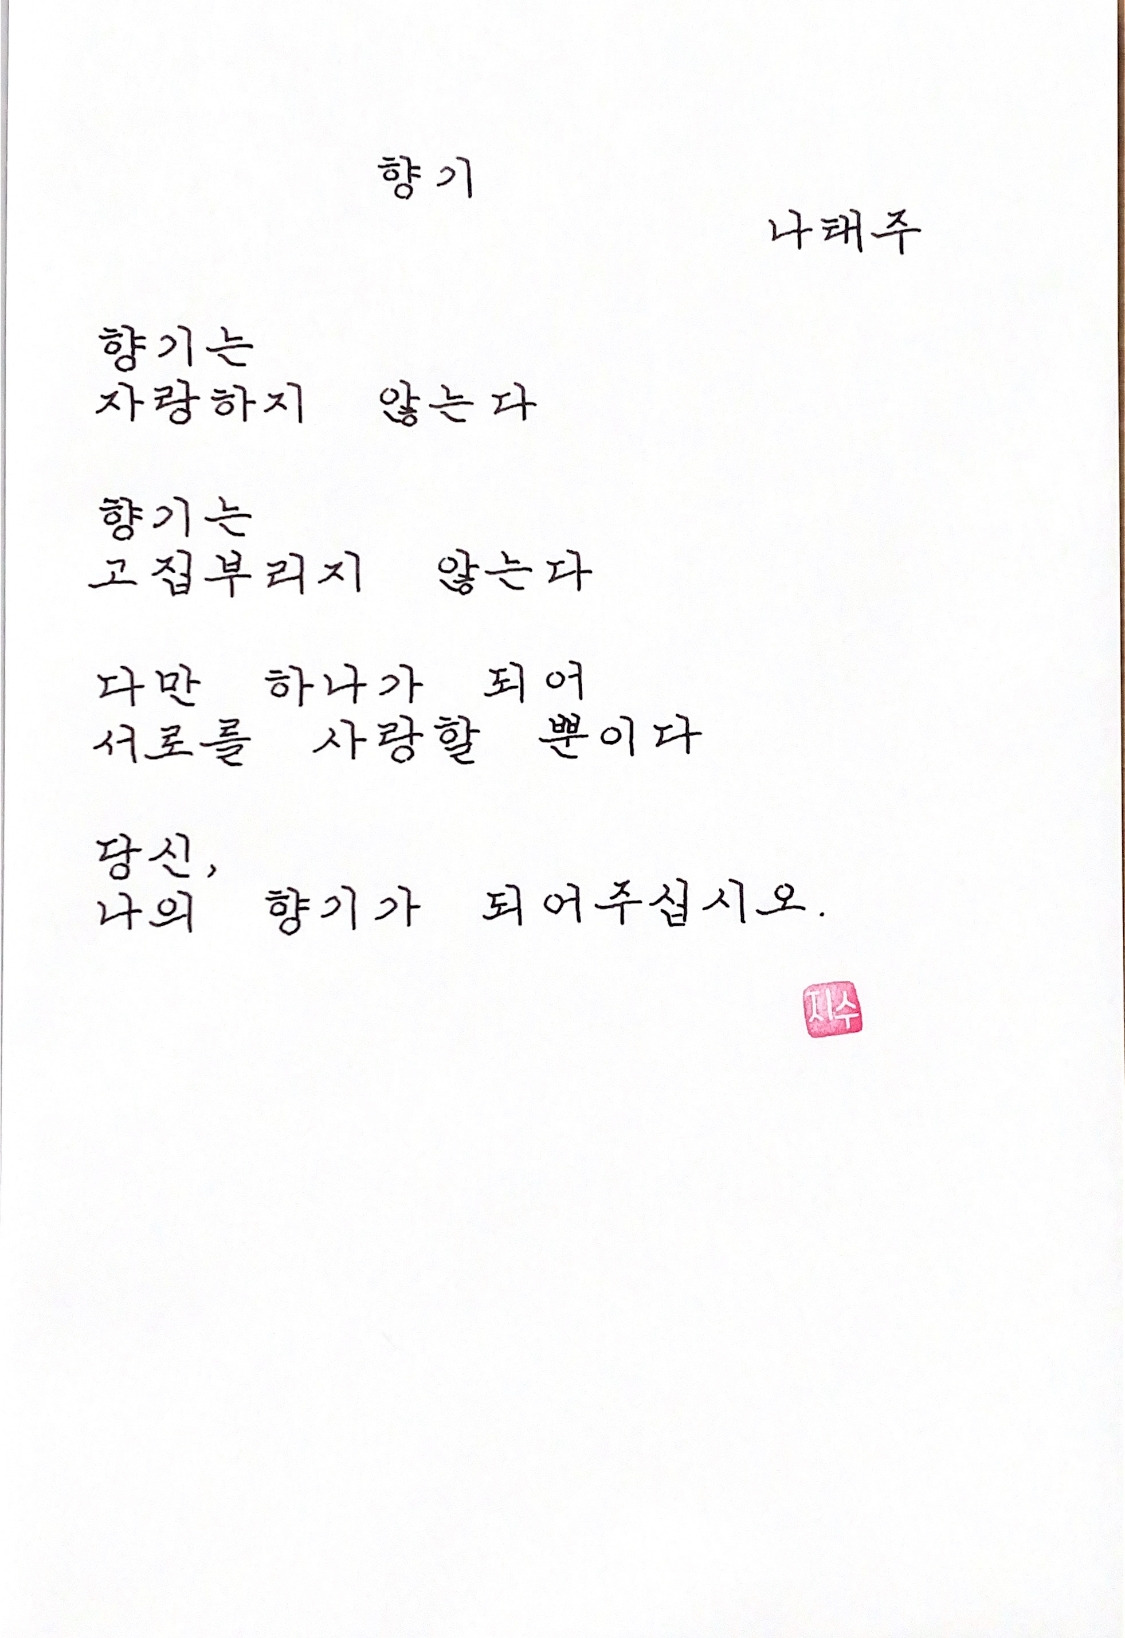 향기
나태주
향기는
자랑하지 않는다
향기는
고집부리지 않는다
다만 하나가 되어
서로를 사랑할 뿐이다
당신,
나의 향기가 되어주십시오.
지수